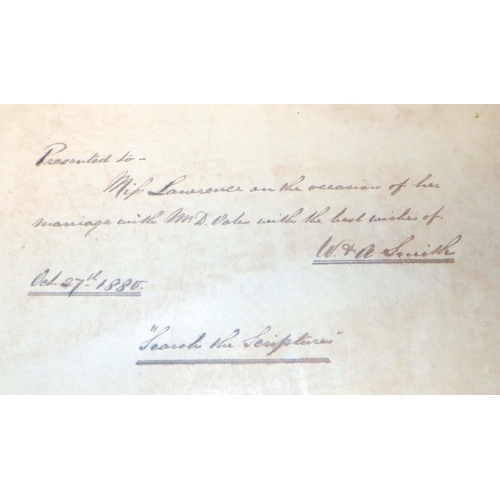 Presented to -
Miss Lawrence on the occasion of her
marriage with Mr D. Oates with the best wishes of.
W. & A Smith
Oct. 27th 1880.
"Search the Scriptures"